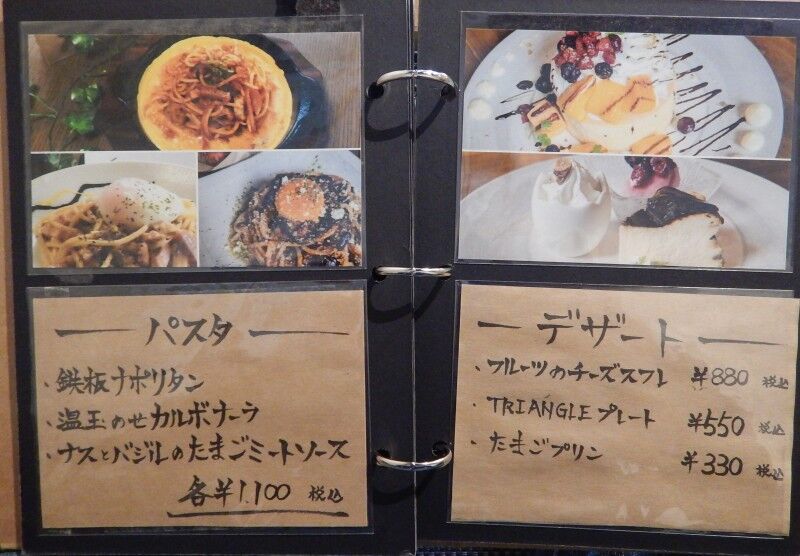 パスタ
・鉄板ナポリタン
・温玉のせカルボナーラ
・ナスとバジルのたまごミートソース
各¥1,100 税込
デザート
・フルーツのチーズスフレ ¥880 税込
・TRIANGLEプレート ¥550 税込
・たまごプリン ¥330 税込